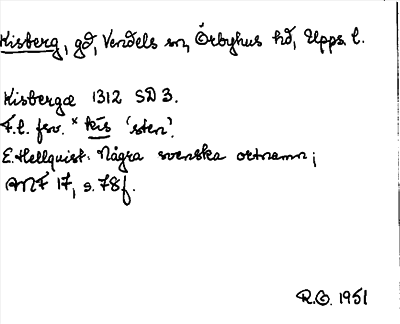 Kisberg, gd, Vendels sn, Örbyhus hd, Upps. l.
Kisbergæ 1312 SD 3.
F.l. fsv. *kis 'sten'.
E. Hellquist. Några svenska ortnamn;
ANF 17, s. 78f.
R.O. 1951